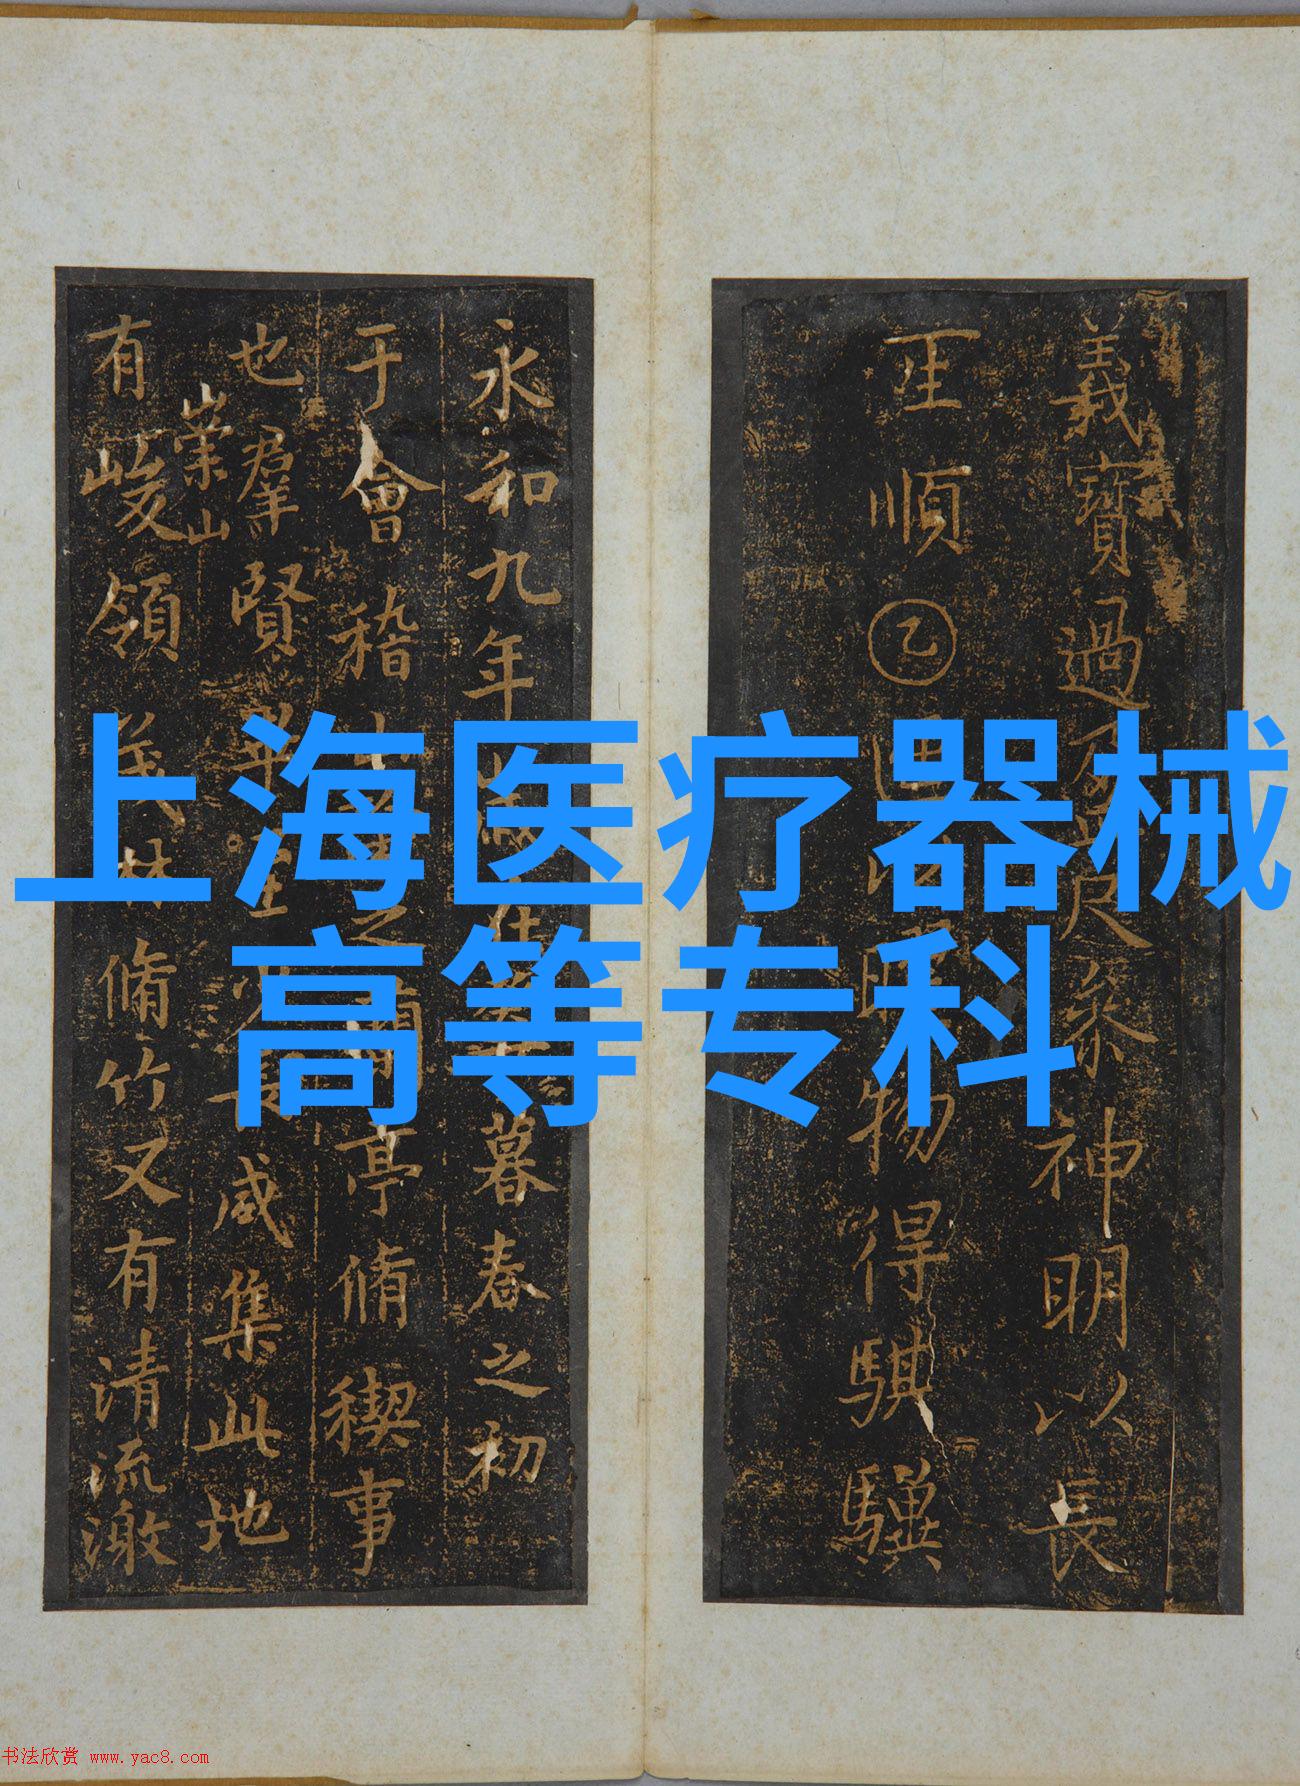 義寶過尺參神明以長
順乙物得騏驥
永和九年歲在暮春之初
于會稽山之蘭亭脩禊事
也群賢畢至少長咸集此地
崇山
有峻領茂林脩竹又有清流激
上海医疗器械
高等专科
书法欣赏 www.yac8.com